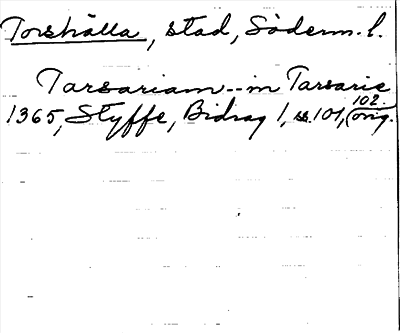 Torshälla, stad, Söderm. l.
Tarsariam -- in Tarsarie
1365, Styffe, Bidrag 1, s. 101, 102. (orig.